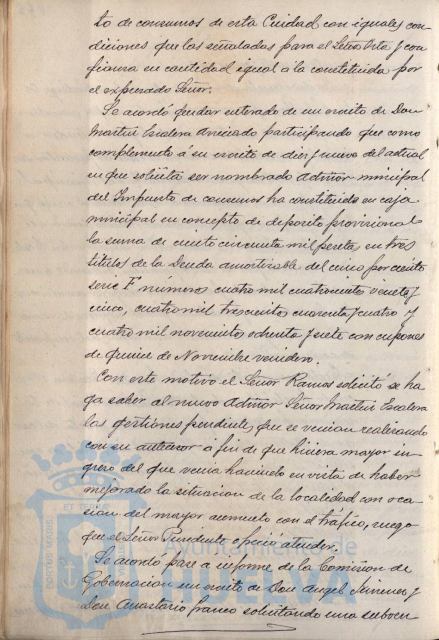 to de consumos de esta Ciudad con iguales con-
diciones que las señaladas para el Señor Orta y con
fianza en cantidad igual á la constituida por
el expresado Señor.
Se acordó quedar enterado de un escrito de Don
Martin Escalera Anciado participando que como
complemento á su escrito de diez y nueve del actual
en que solicita ser nombrado Admor municipal
del Impuesto de consumos ha constituido en caja
municipal en concepto de deposito provisional
la suma de ciento cincuenta mil pesetas en tres
titulos de la Deuda amortizable del cinco por ciento
serie F numeros cuatro mil cuatrocientos veinte y
cinco, cuatro mil trescientos cuarenta y cuatro y
cuatro mil novecientos ochenta y siete con cupones
de quince de Noviembre venidero.
Con este motivo el Señor Ramos solicitó se ha
ga saber al nuevo Admor Señor Martin Escalera
las gestiones pendientes que se venian realizando
con su antecesor á fin de que hiciera mayor in-
greso del que venia haciendo en vista de haber
mejorado la situacion de la localidad con oca
sion del mayor aumento con el tráfico, ruego
que el Señor Presidente ofreció atender.
Se acordó pase a informe de la Comision de
Gobernacion un escrito de Don Angel Jimenez y
Don Anastasio franco solicitando una subven
Ayuntamiento de
HUELVA
PORTUS MARIS ET TERRÆ CUSTODIA